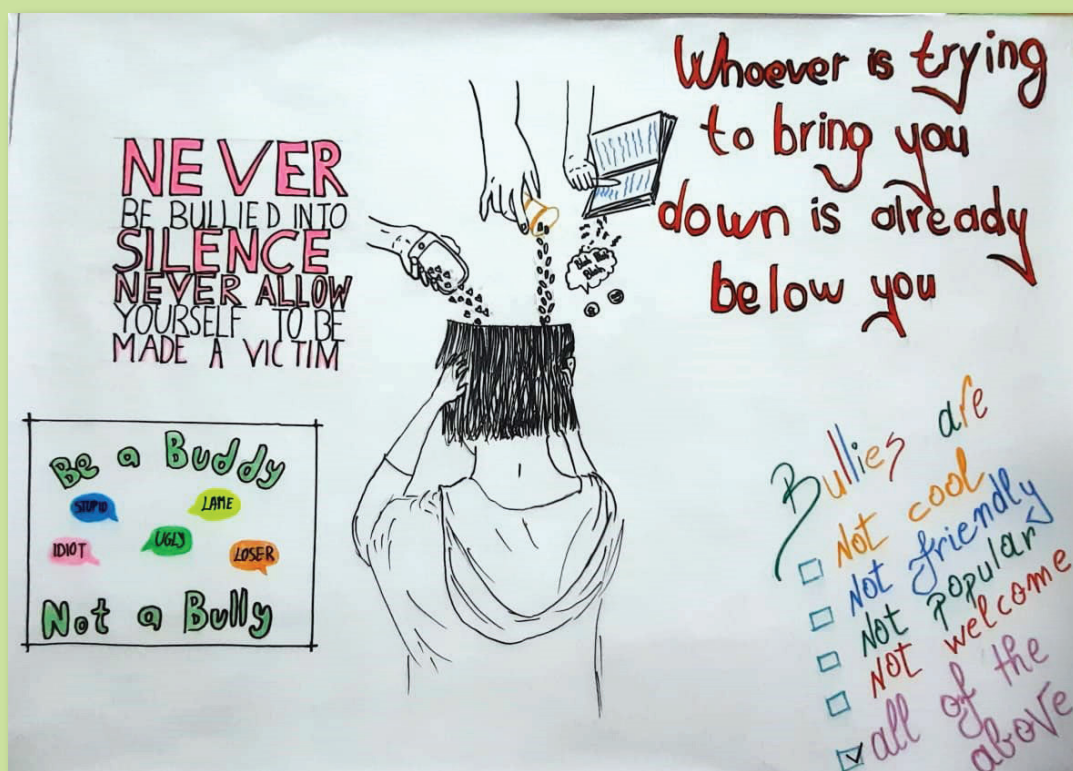 NEVER
BE BULLIED INTO
SILENCE
NEVER ALLOW
YOURSELF TO BE
MADE A VICTIM
Whoever is trying
to bring you
down is already
below you
Blah Blah
Blah
Be a Buddy
STUPID
LAME
IDIOT
UGLY
LOSER
Not a Bully
Bullies are
Not cool
Not friendly
Not popular
Not welcome
all of the
above